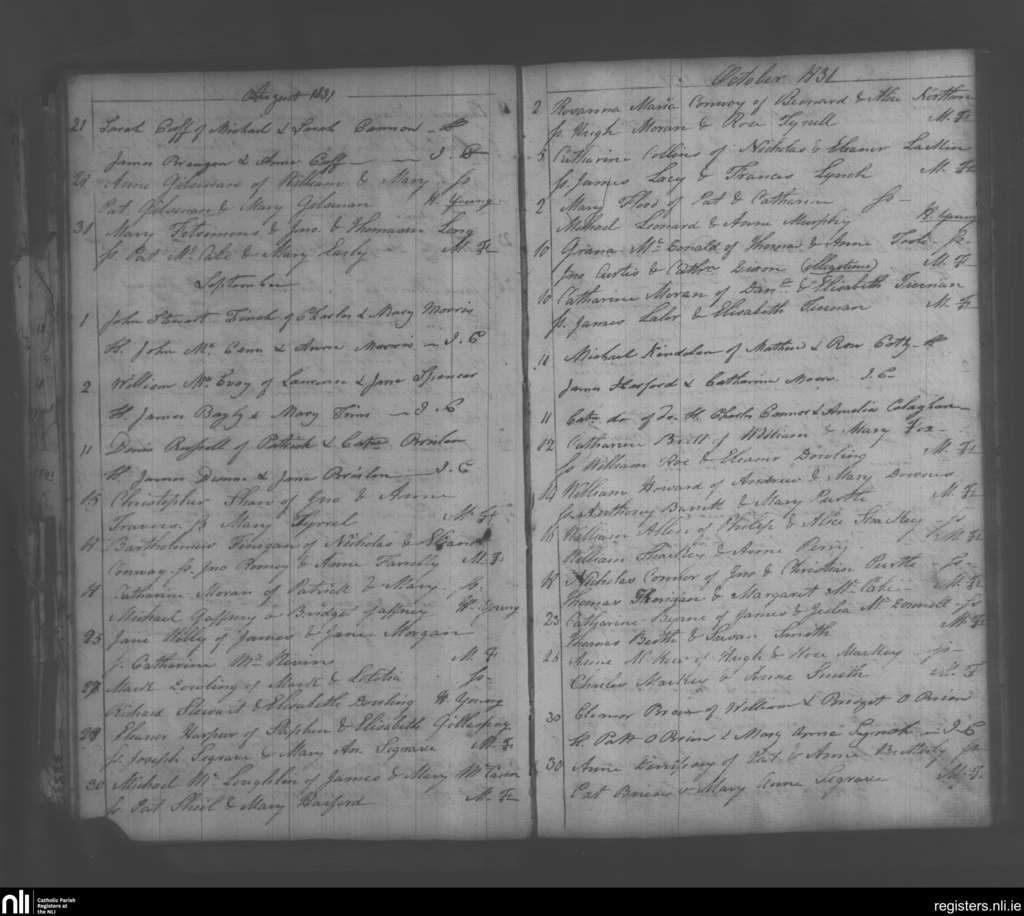 August 1831
21 Sarah Goff of Michael & Sarah Cannon - Sp
James Brangan & Anne Goff — J. C
Anne Gilsenan of William & Mary Sp
Pat Gilsenan & Mary Gilsenan H. Young
31 Mary Fitsimons of Jno & Thomasin Long
Sp Pat Mc Cabe & Mary M. F
September
1 John Stewart Finch of Charles & Mary Morris
John Mc Cann & Anne Morris — J. C
2 William Mc Evoy of Lawrence & Jane Spencer
James Bagly & Mary — J. C
11 Russell of Patrick & Cate Breslen
James & Jane Breslen — J. C
15 Christopher Shaw of Jno & Anne
Travers. Sp Mary Tyrrel M. F
Bartholomew Finigan of Nicholas &
Conway Sp. Jno Rooney & Anne Farrelly M. F
Catharine Moran of Patrick & Mary Sp.
Michael Gaffney & Bridget Gaffney H. Young
25 Jane of James & Jane Morgan
Sp. Catharine Mc Kevin M. F
27 Mark Dowling of Mark & Letitia Sp
Richard Stewart & Elisabeth Dowling H. Young
28 Eleanor Harper of Stephen & Elisabeth Gillespey
Sp. Joseph Segrave & Mary An Segrave M. F
30 Michael Mc Loughlin of James & Mary Mc Cann
Sp Pat Sheil & Mary Harford M. F
October 1831
2 Rosanna Maria Conroy of Bernard & Alice
Sp. Hugh Moran & Rose Tyrell M. F
5 Catharine Collins of Nicholas & Eleanor
Sp. James Lacy & Frances Lynch M. F
2 Mary Flood of Pat & Catharine Sp
Michael Leonard & Anne Murphy H. Young
10 Grana Mc Donald of Thomas & Anne Toole Sp.
Jno Curtis & Cathn Dixon M. F
10 Catharine Moran of Danl & Elisabeth Tiernan
Sp. James Lalor & Elisabeth Tiernan M. F
11 Michael Kindelan of Mathew & Rose Sp
James Harford & Catharine Moore J. C
11 Cate dr of Do Charles Connor & Amelia Calaghan
12 Catharine of William & Mary Fox
Sp William Roe & Eleanor Dowling M. F
14 William Howard of Andrew & Mary Downes
Sp. Anthony Barrett & Mary Purtle M. F
16 William of Philip & Alice Sp
William Sharkey & Anne Perry M. F
Nicholas Connor of Jno & Christian Purtle Sp
Thomas & Margaret Mc Cabe M. F
23 Catharine Byrne of James & Julia Mc Donnell Sp
Thomas Booth & Susan Smith M. F
26 Anne of Hugh & Rose Markey Sp
Charles Markey & Anne Smith M. F
30 Eleanor of William & Bridget O Brien
Patt O Brien & Mary Anne — J C
30 Anne of Pat & Anne Sp
Pat Brien & Mary Anne Segrave M. F
nli
Catholic Parish
Registers at
the NLI
registers.nli.ie